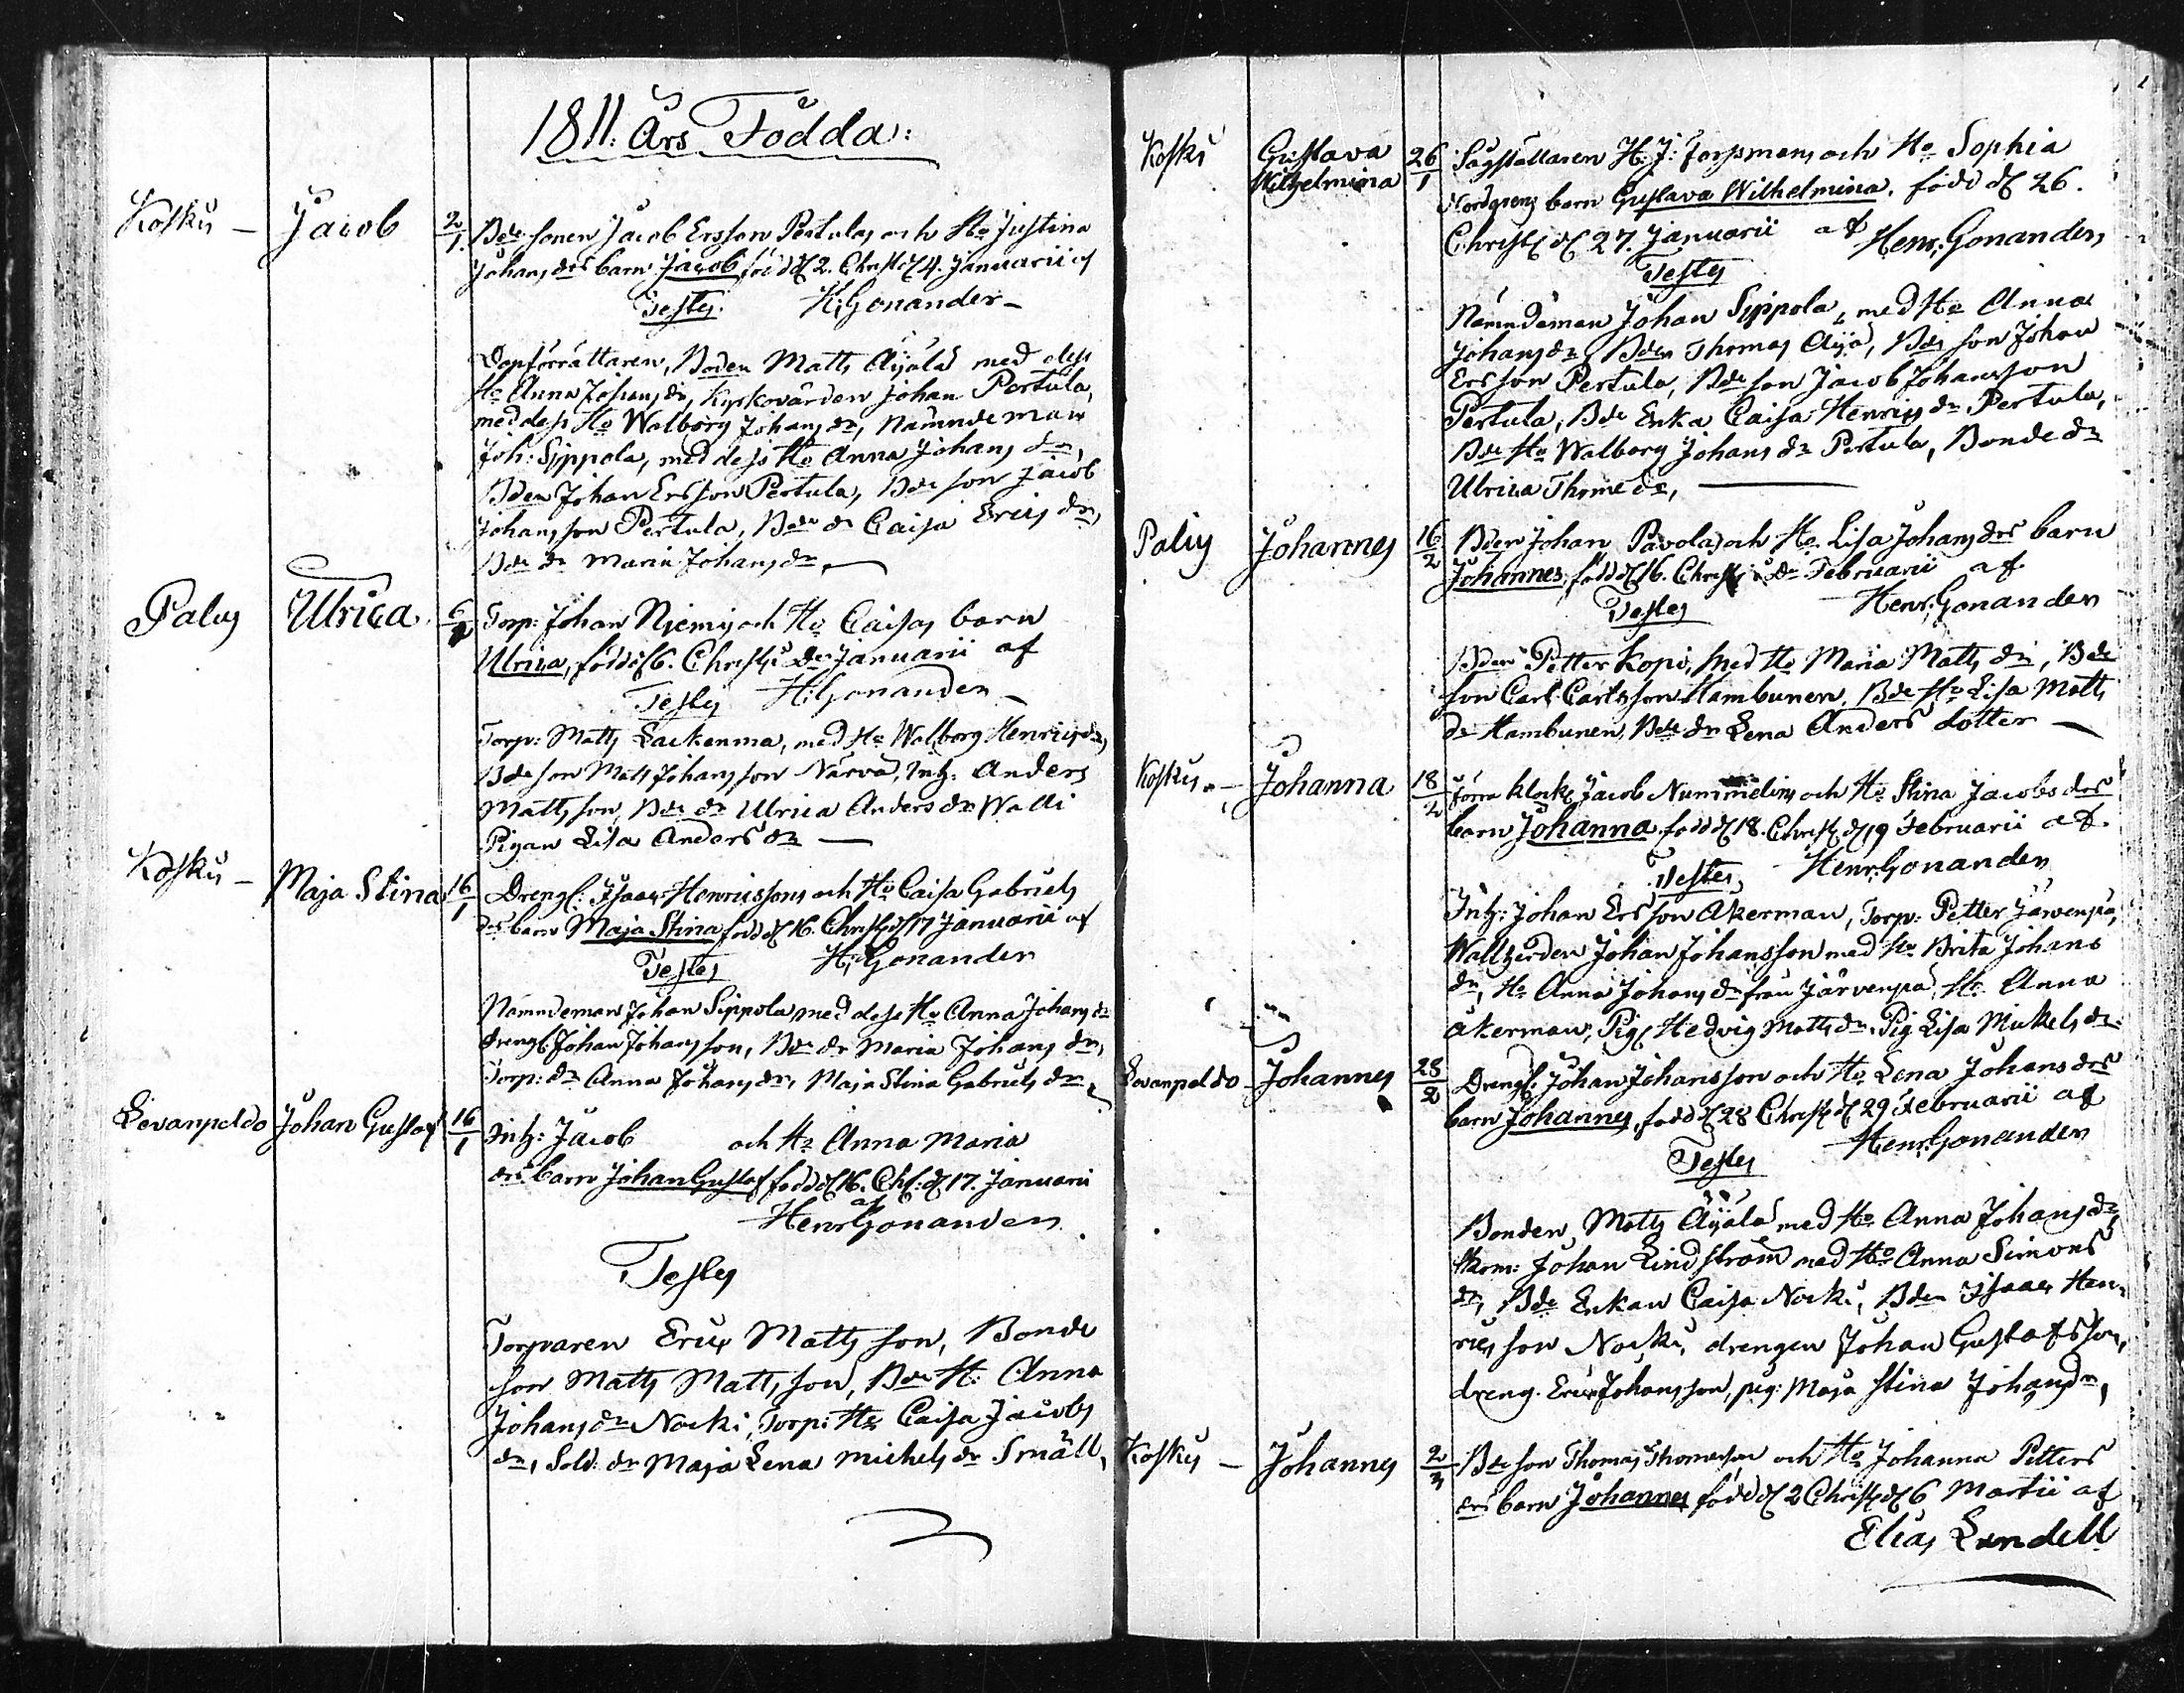 1811. Års Födda:
Koskis – Jacob 2/1 Bde sonen Jacob Ersson Pertulas och Ho Justina
Johans drs barn Jacob född d 2. Christ d 4. Januarii af
Testes. H: Gonander –
Dopförrättaren, Bonden Matts Äyälä med dess
Ho Anna Johans dr, Kyrkovärden Johan Pertula,
med dess Ho Walborg Johans dr, Nämndeman
Joh: Sippola, med dess Ho Anna Johans dr,
Bden Johan Ersson Pertula, Bde son Jacob
Johansson Pertula, Bde dr Caisa Erics dr,
Bde dr Maria Johans dr,
Palus Ulrica 6/1 Torp: Johan Niemis och Ho Caisas barn
Ulrica, född d 6. Christ Januarii af
Testes H: Gonander –
Torp: Matts Laikenma, med Ho Walborg Henrics dr,
Bde son Matts Johansson Närvä, Inh: Anders
Mattsson, Bde dr Ulrica Anders dr Walli
Pigan Lisa Anders dr —
Koskis – Maja Stina 16/1 Drengs: Isaac Henricssons och Ho Caisa Gabriels
drs barn Maja Stina född d 16. Christ d 17 Januarii af
Testes H: Gonander
Nämndeman Johan Sippola med dess Ho Anna Johans dr
drengs Johan Johansson, Bde dr Maria Johans dr,
Torp: dr Anna Johans dr, Maja Stina Gabriels dr
Levanpeldo Johan Gustaf 16/1 Inh: Jacob och Ho Anna Maria
drs barn Johan Gustaf född d 16. Chs: d 17. Januarii
af
Henr: Gonander
Testes
Torparen Eric Mattsson, Bonde
son Matts Mattsson, Bde H: Anna
Johans dr Nocki, Torp: Ho Caisa Jacobs
dr, Sold: dr Maja Lena Michels dr Smäll,
Koski Gustava
Wilhelmina 26/1 Sågställaren H: J: Forssmans och Ho Sophia
Nordgrens barn Gustava Wilhelmina. född d 26.
Christ d 27. Januarii af Henr: Gonander
Testes
Nämndeman Johan Sippola, med Ho Anna
Johans dr, Bden Thomas Äijä, Bde son Johan
Ersson Pertula, Bde son Jacob Johansson
Pertula, Bde Enka Caisa Henrics dr Pertula,
Bde Ho Walborg Johans dr Pertula, Bonde dr
Ulrica Thome dr, —
Palus Johannes 16/2 Bden Johan Pavolas och Ho Lisa Johans drs barn
Johannes, född d 16. Christ Februarii af
Testes Henr: Gonander
Bden Petter Kopi, med Ho Maria Matts dr, Bde
son Carl Carlsson Hambunen, Bde Ho Lisa Matts
dr Hambunen, Bde dr Lena Anders dotter —
Koskis – Johanna 18/2 Förra klock: Jacob Nummelins och Ho Stina Jacobs drs
barn Johanna född d 18. Christ d 19 Februarii af
Testes Henr: Gonander
Inh: Johan Ersson Åkerman, Torp: Petter Järvenpä,
Wallherden Johan Johansson med Ho Brita Johans
dr, Ho Anna Johans dr från Järvenpä, Ho Anna
Åkerman, Pig: Hedvig Matts dr, Pig Lisa Mickels dr
Levanpeldo – Johannes 28/2 Drengs: Johan Johansson och Ho Lena Johans drs
barn Johannes, född d 28 Christ d 29 Februarii af
Testes Henr: Gonander
Bonden, Matts Äyälä med Ho Anna Johans dr
Johan Lindström med Ho Anna Simons
dr, Bde Enkan Caisa Nocki, Bden Isaac Hen-
rics son Nocki, drengen Johan Gustafsson,
dreng. Eric Johansson, pig: Maja Stina Johans dr,
Koskis – Johannes 2/3 Bde son Thomas Thomasson och Ho Johanna Petters
drs barn Johannes född d 2 Christ d 6 Martii af
Elias Lundell